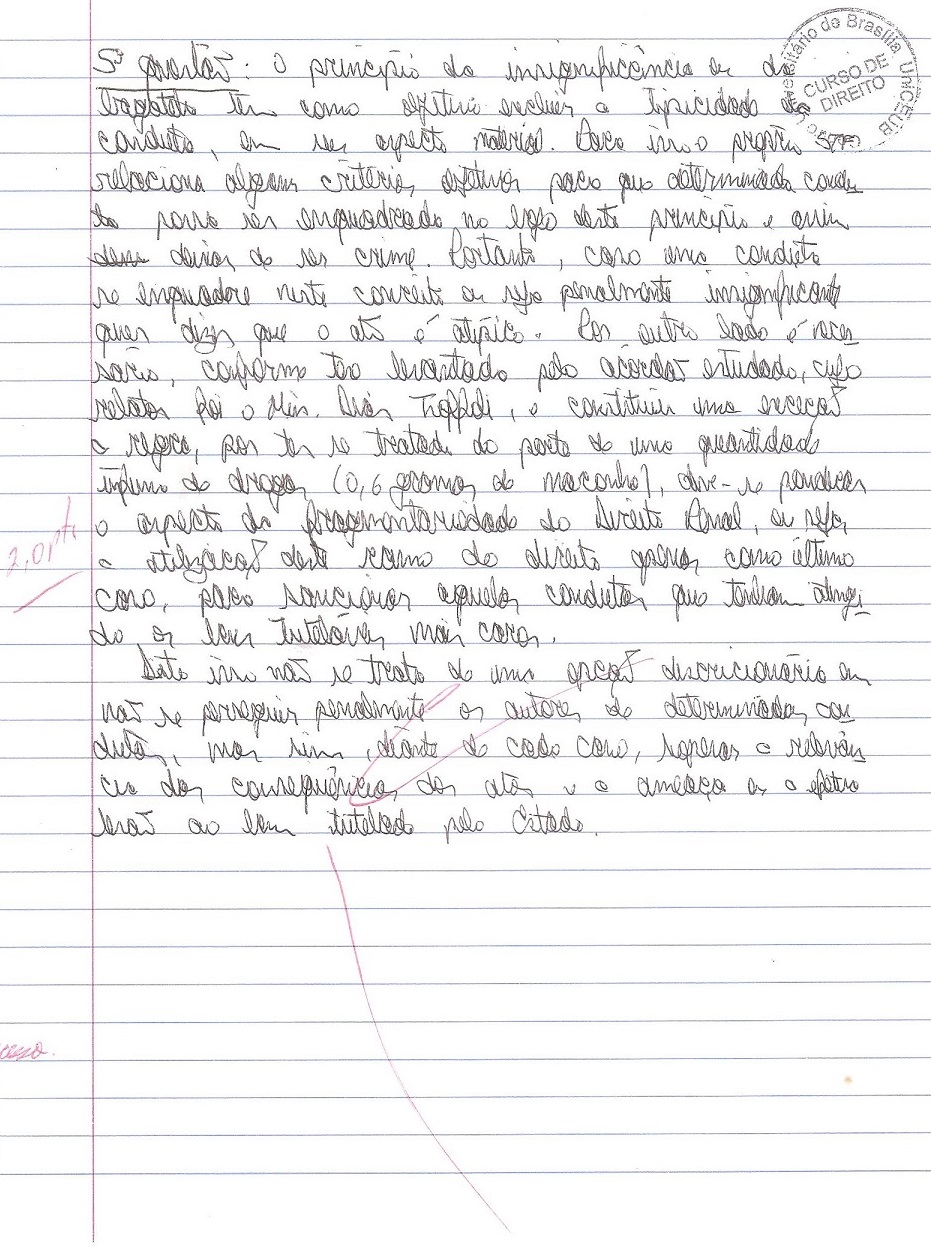 5ª questão: O princípio da insignificância ou da
bagatela tem como objetivo excluir a tipicidade da
conduta, em seu aspecto material. Para isso o próprio STF
relaciona alguns critérios objetivos para que determinada condu
ta possa ser enquadrada no bojo deste princípio e assim
deixar de ser crime. Portanto, caso uma conduta
se enquadre neste conceito ou seja penalmente insignificante
quer dizer que o ato é atípico. Por outro lado é neces
sário, conforme foi levantado pelo acórdão estudado, cujo
relator foi o Min. Dias Toffoli, e constituiu uma exceção
a regra, por ter se tratado do porte de uma quantidade
ínfima de drogas (0,6 gramas de maconha), deve-se ponderar
o aspecto da fragmentariedade do Direito Penal, ou seja,
a utilização deste ramo do direito apenas como último
caso, para sancionar aquelas condutas que tenham atingi
do os bens tuteláveis mais caros.
2,0 pts
Dito isso não se trata de uma opção discricionária em
não se perseguir penalmente os autores de determinadas con
dutas, mas sim, diante de cada caso, sopesar a relevân
cia das consequências dos atos e a ameaça ou a efetiva
lesão ao bem tutelado pelo Estado.
CURSO DE
DIREITO
UniCEUB